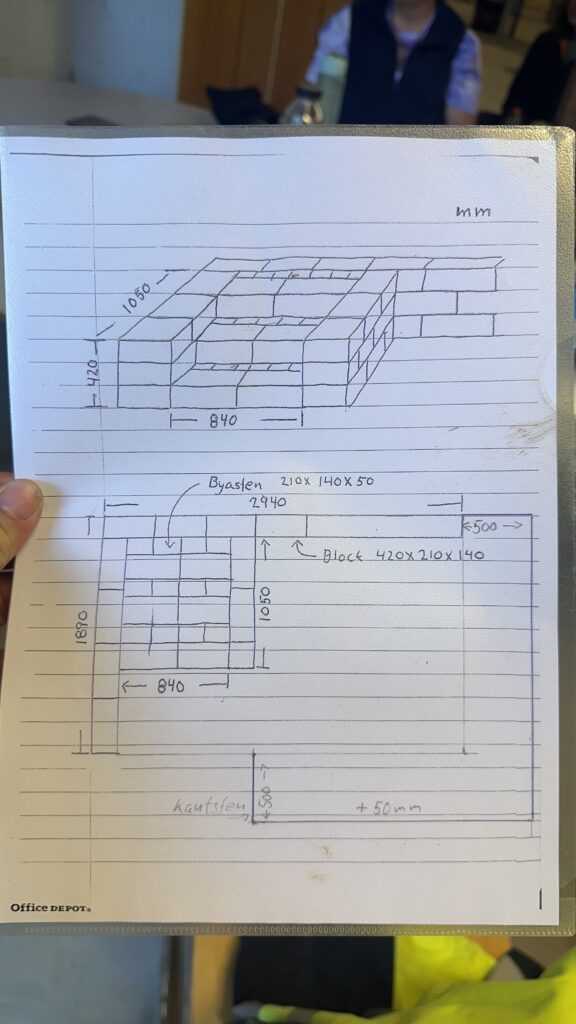 mm
1050
420
840
Byasten 210x140x50
2940
500
Block 420x210x140
1890
1050
840
500
Kantsten
+50mm
Office DEPOT